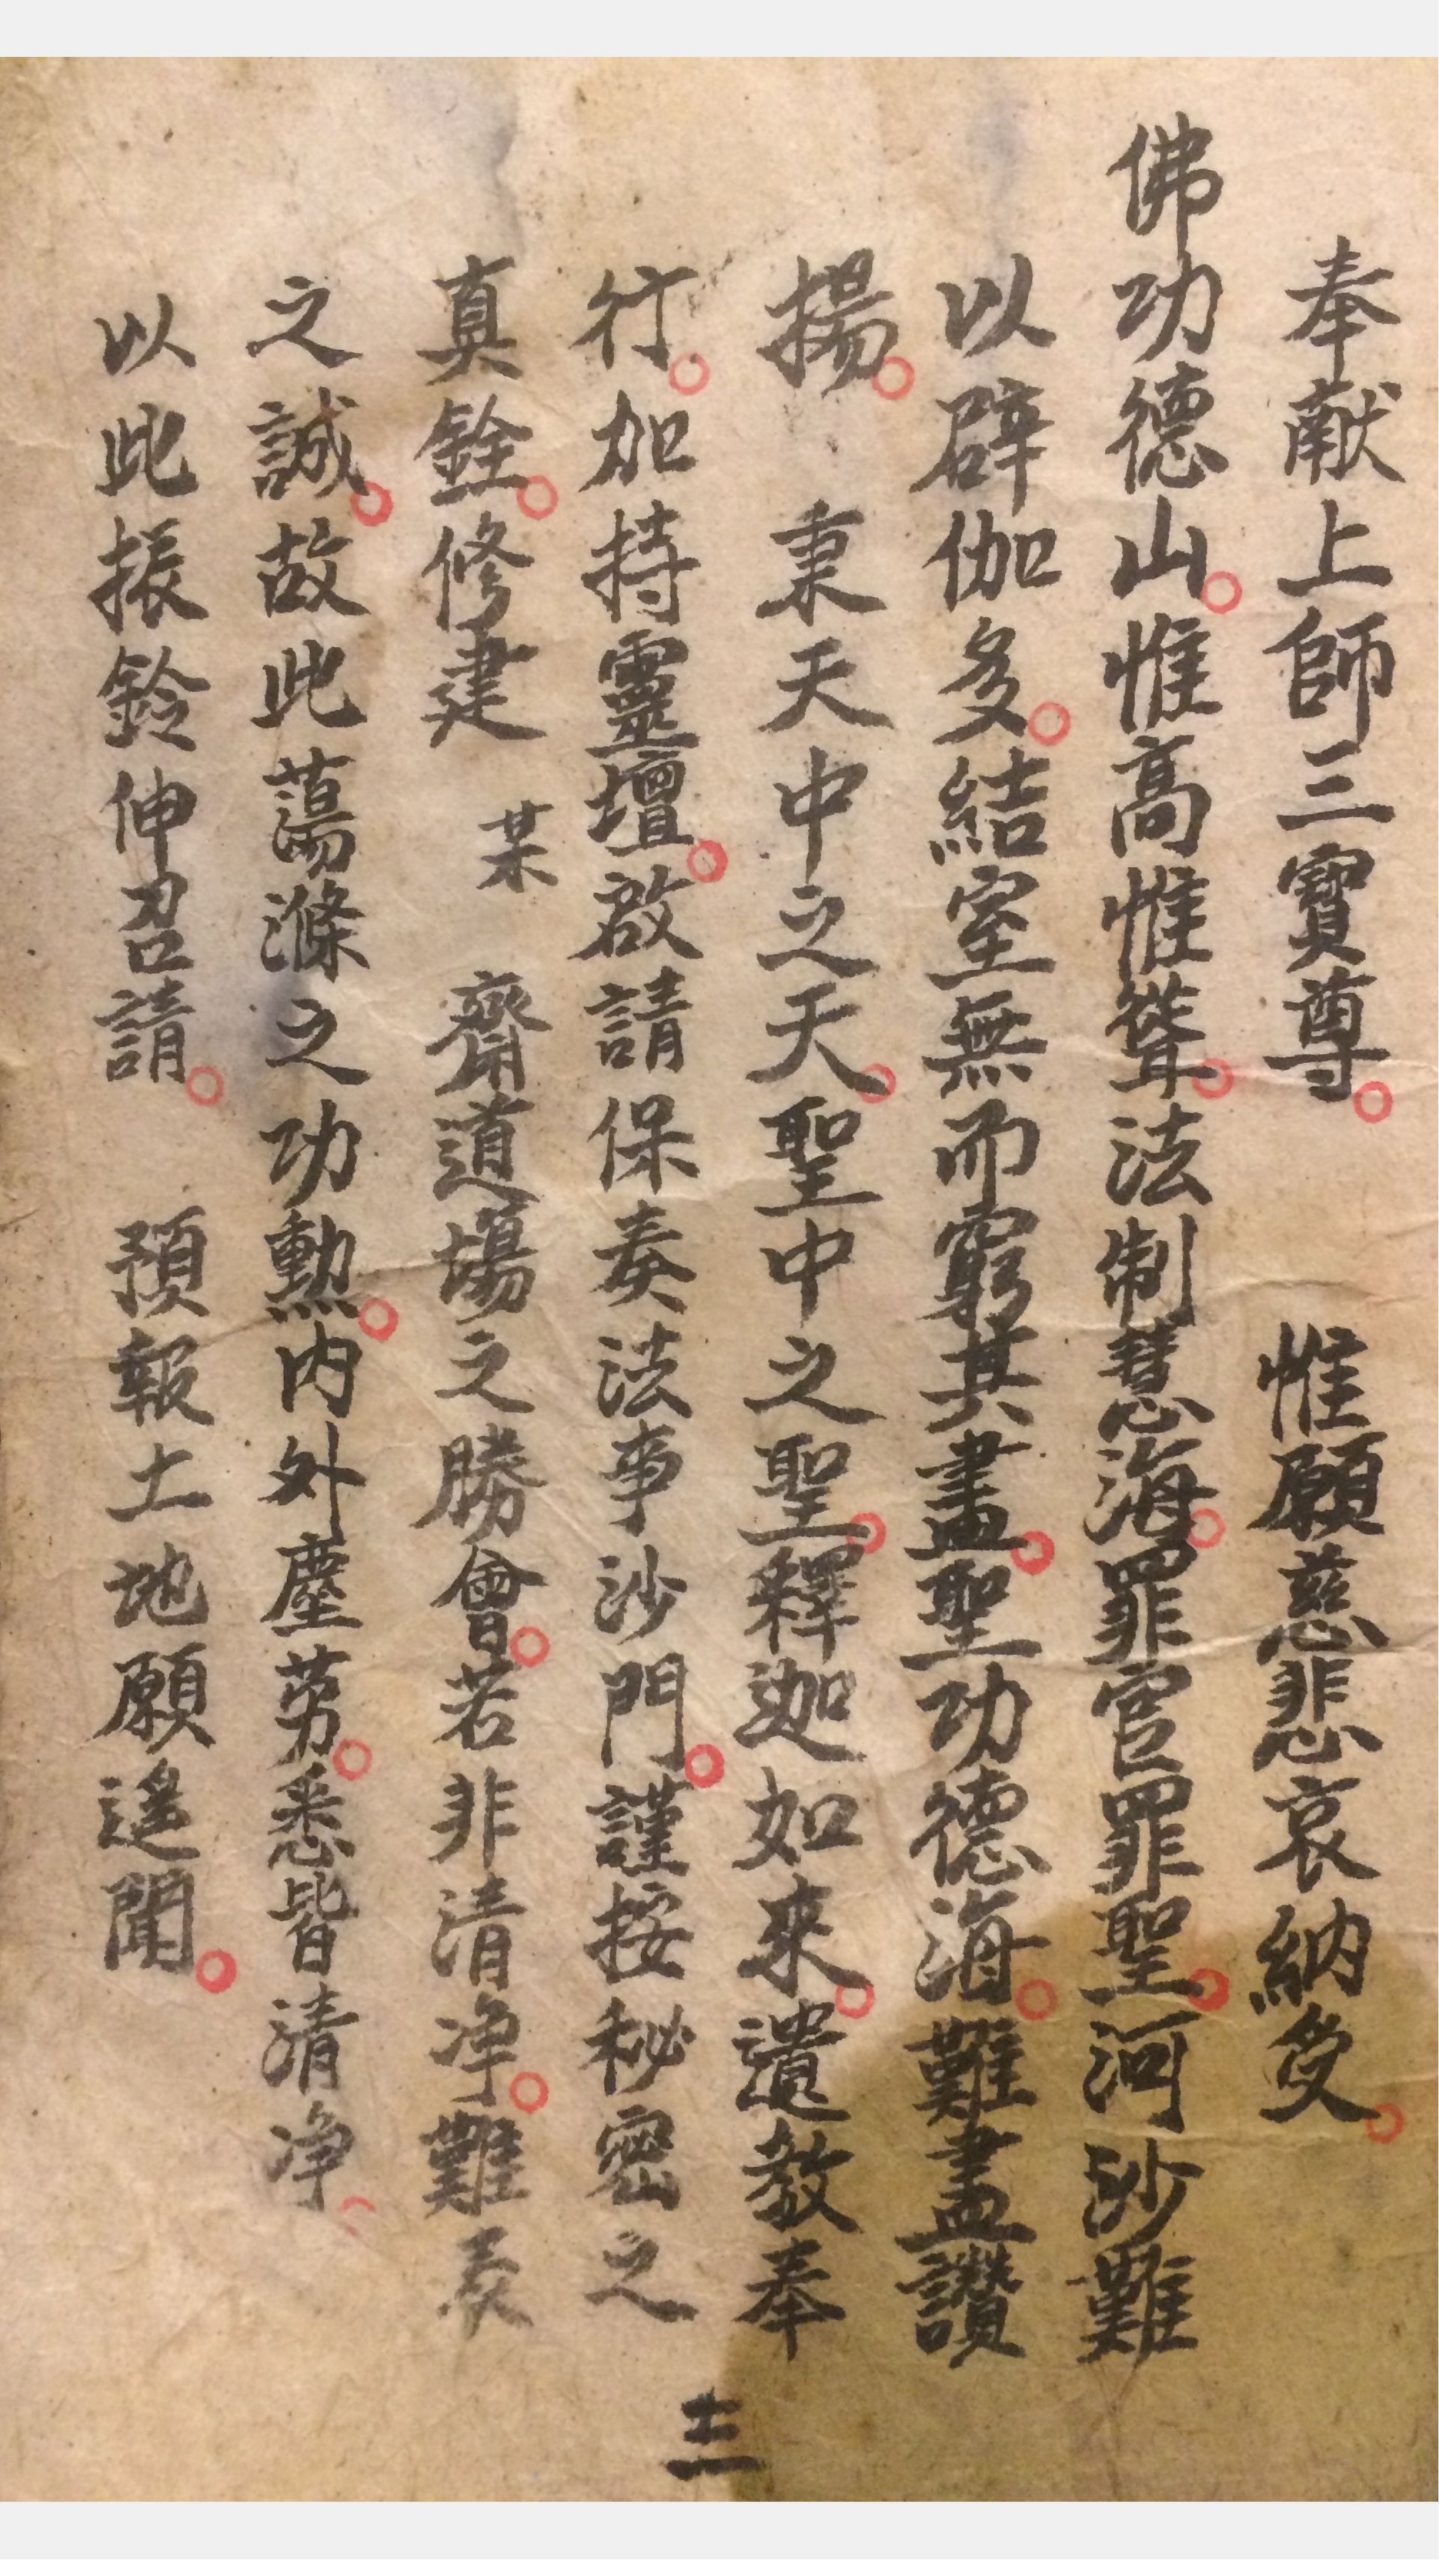 奉献上師三寳尊。惟願慈悲哀納受。
佛功德山。惟高惟聳。法制慧海。罪官罪聖。河沙難
以辟伽多。結室無而窮其盡。聖功德海。難盡讃
揚。秉天中之天。聖中之聖。釋迦如來。遺教奉
行。加持靈壇。啟請保奏法事沙門。謹按秘密之
真銓。修建某齋道場之勝會。若非清净。難表
之誠。故此蕩滌之功勲。内外塵労。悉皆清净。
以此振鈴伸召請。預報土地願遥聞。
十二